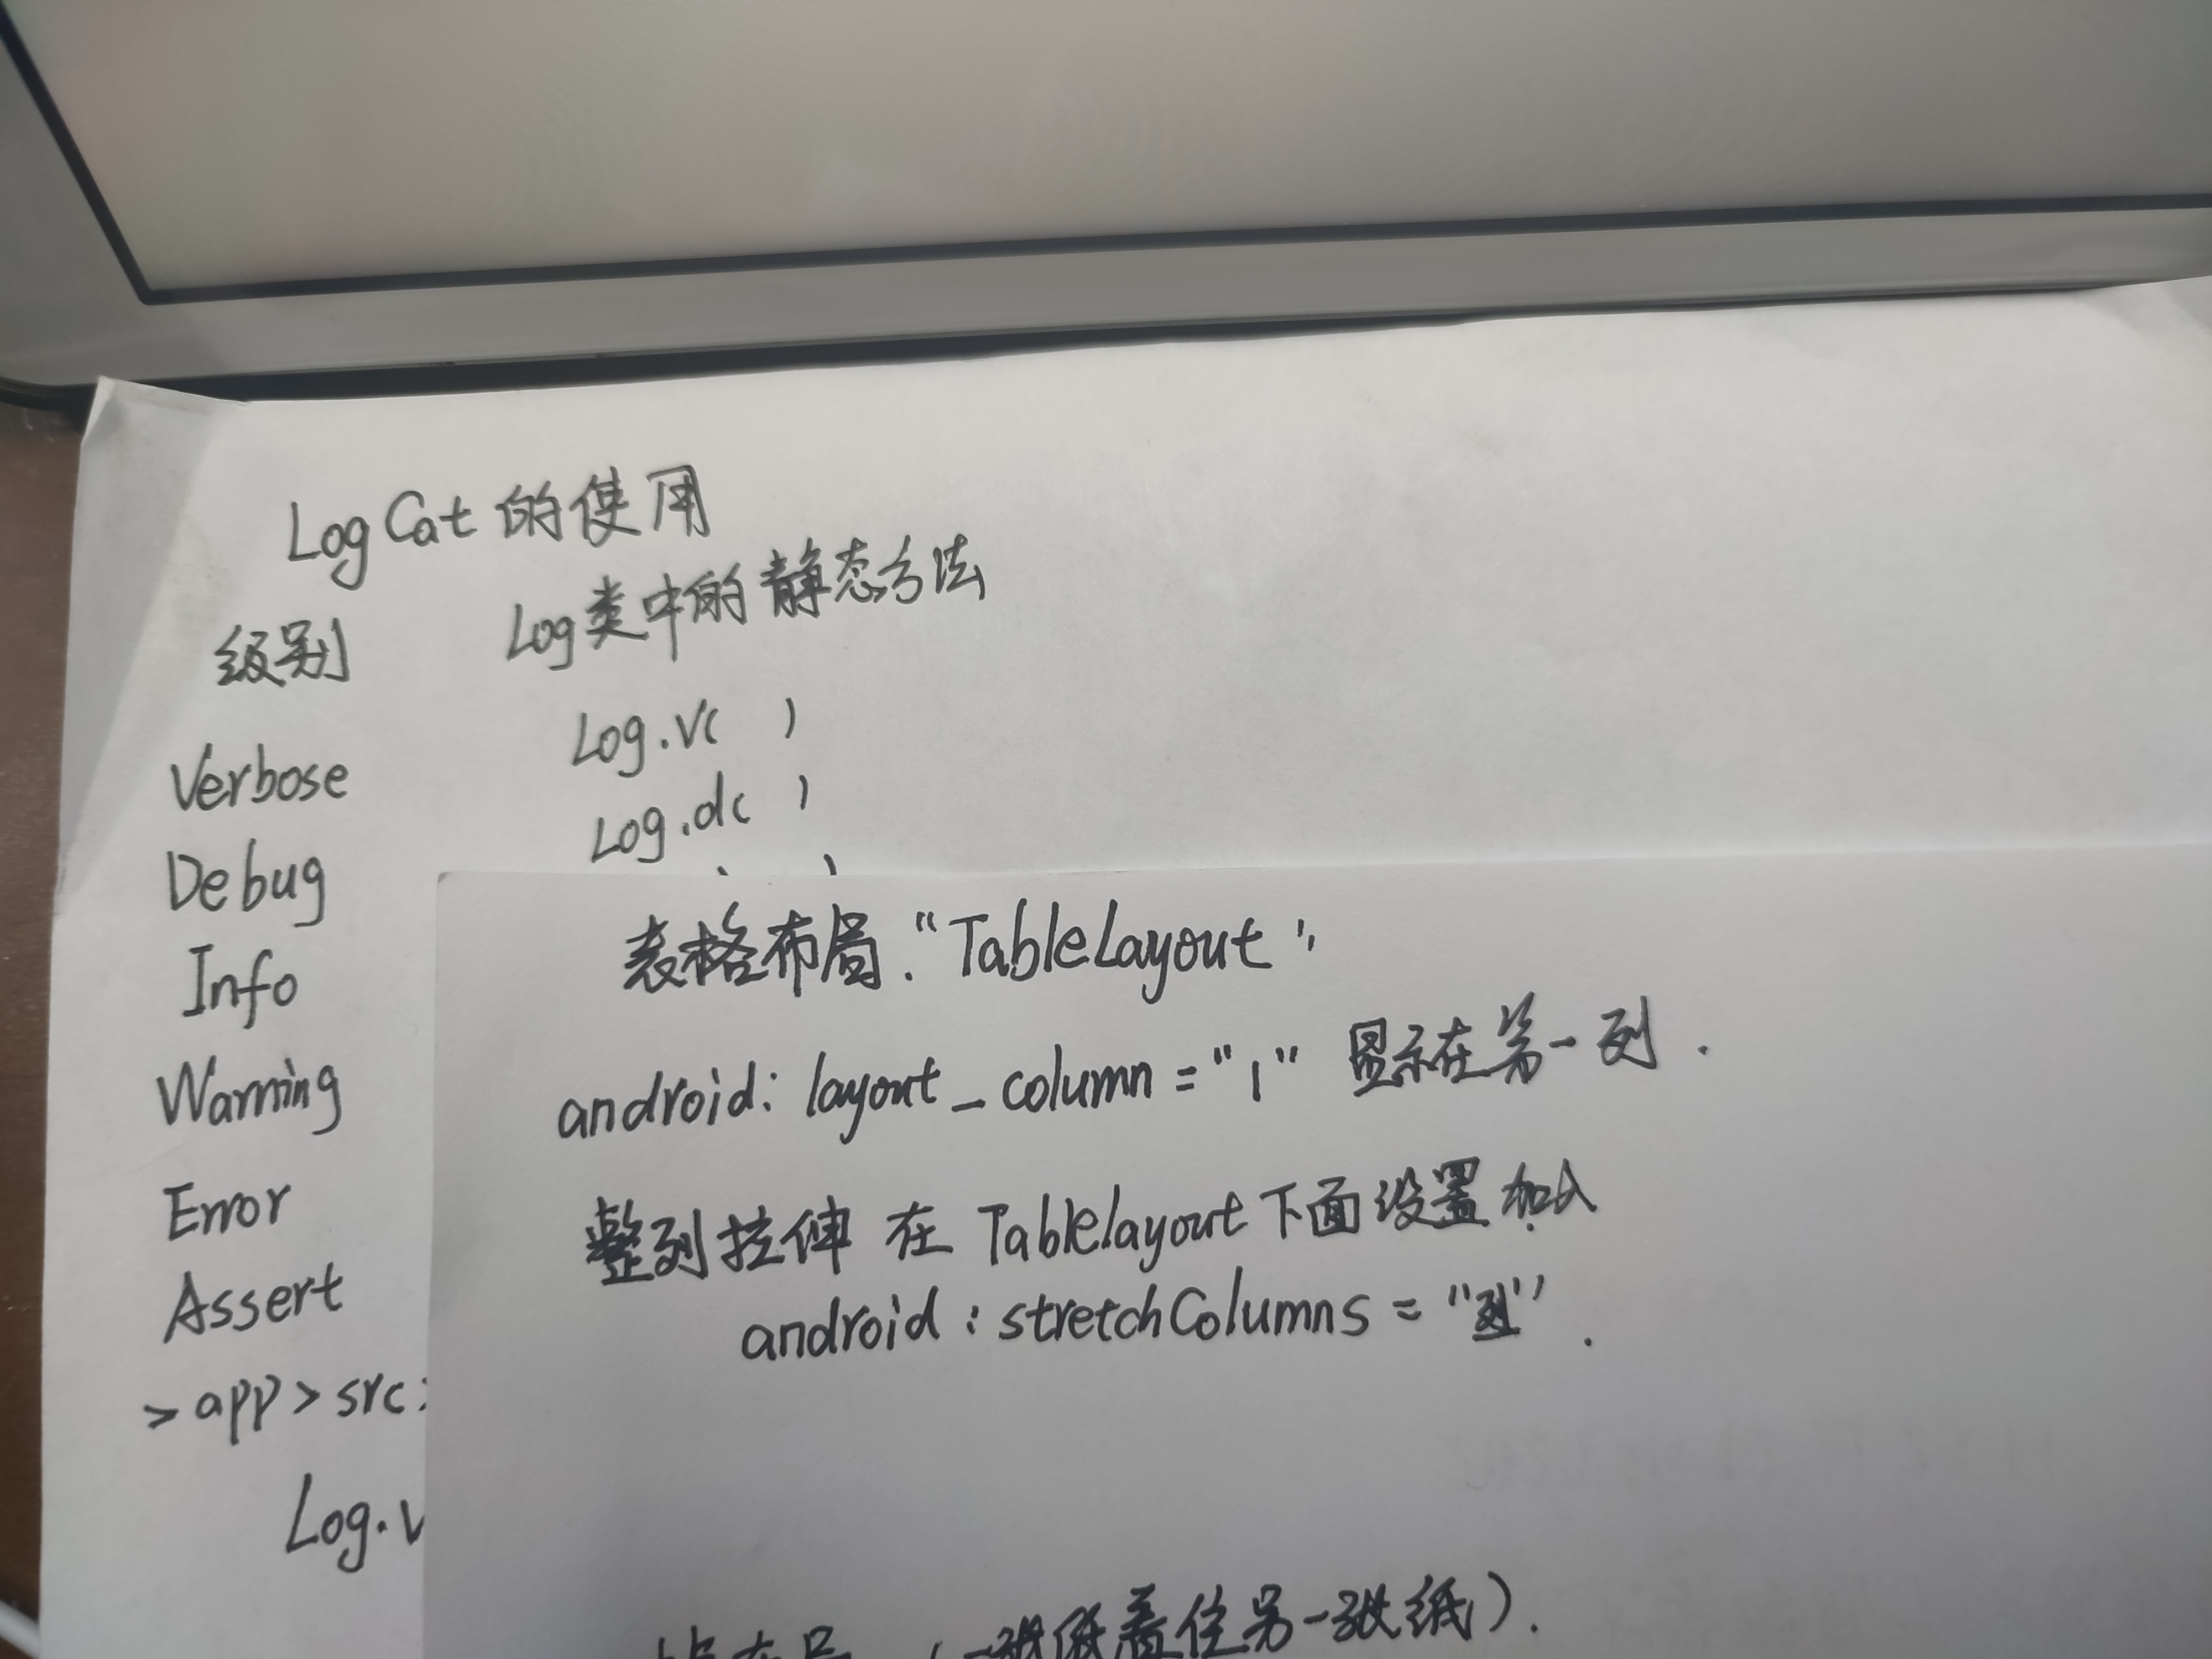 LogCat的使用
级别 Log类中的静态方法
Verbose Log.v( )
Debug Log.d( )
Info
Warning
Error
Assert
>app>src
Log.v
表格布局."TableLayout"
android: layout_column="1" 显示在第一列.
整列拉伸 在 Tablelayout下面设置 加入
android:stretchColumns="列".
(一张纸盖住另一张纸).